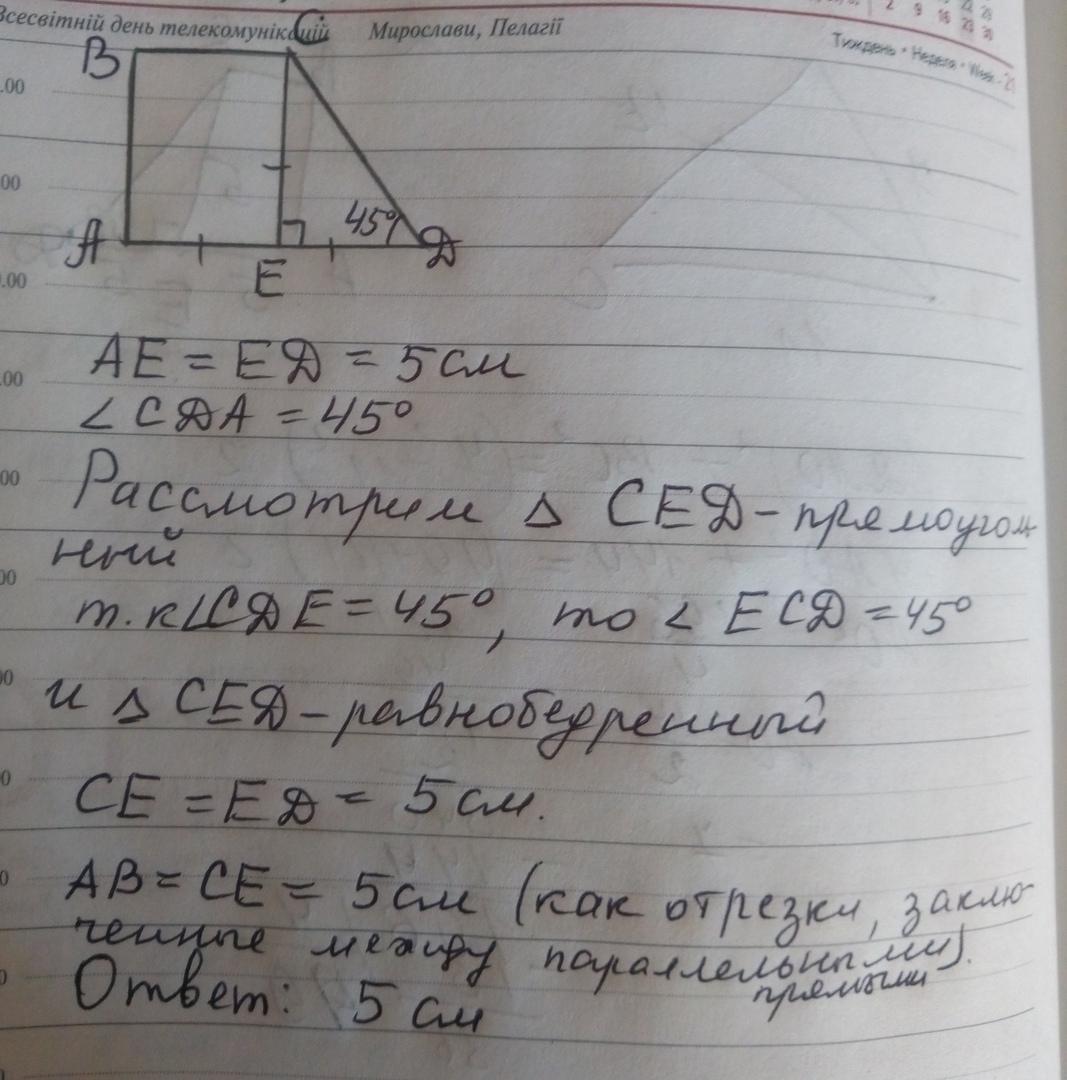 Всесвітній день телекомунікацій Мирослави, Пелагії
2 9 16 23 30
Тиждень • Неделя • Week - 21
C
B
.00
.00
45°
A
D
E
.00
AE = ED = 5 см
.00
∠CDA = 45°
00
Рассмотрим △ CED - прямоуголь
ный
00
т.к ∠CDE = 45°, то ∠ ECD = 45°
00
и △ CED - равнобедренный
0
CE = ED = 5 см.
0
AB = CE = 5 см (как отрезки, заклю-
ченные между параллельными).
прямыми
0
Ответ: 5 см